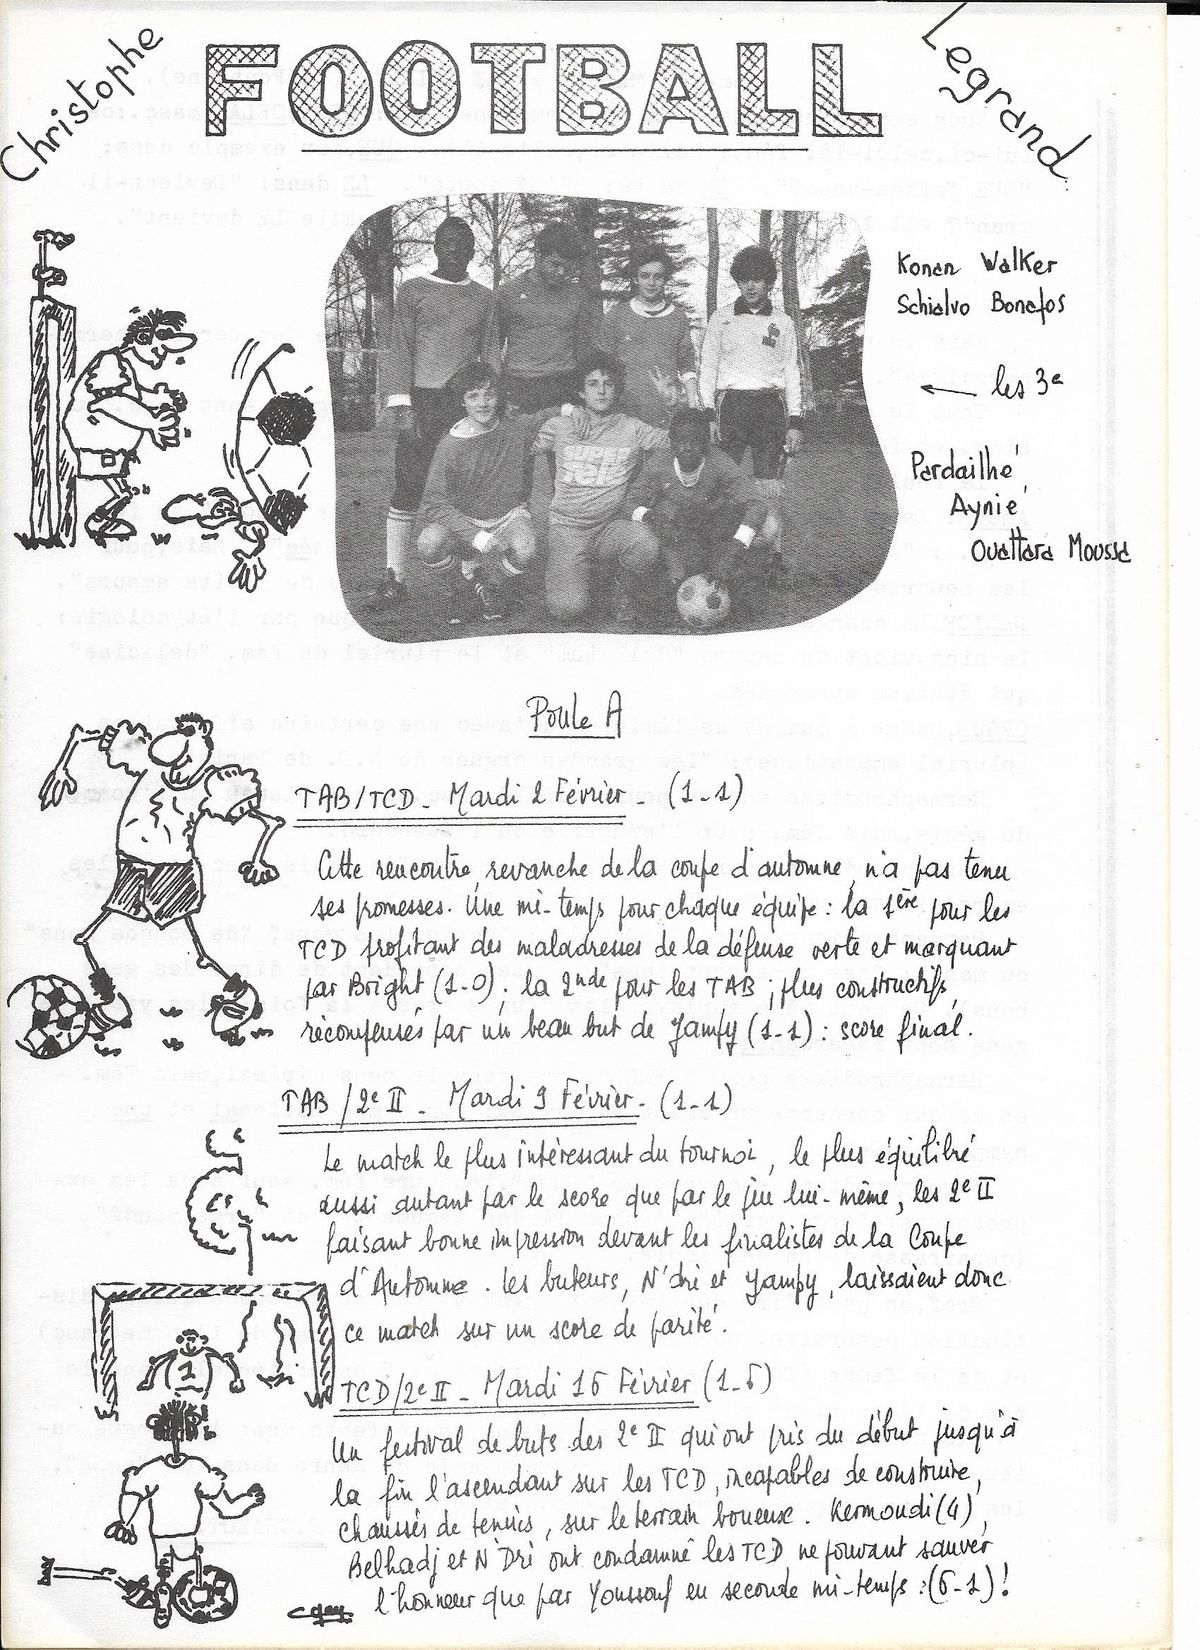 Christophe
FOOTBALL
Legrand.
Konan Walker
Schialvo Bonafos
← les 3e
Pardailhé
Aynié
Ouattara Moussa
SUPER
TELE
Poule A
TAB/TCD - Mardi 2 Février - (1-1)
Cette rencontre, revanche de la coupe d'automne, n'a pas tenu
ses promesses. Une mi-temps pour chaque équipe : la 1ère pour les
TCD profitant des maladresses de la défense verte et marquant
par Bright (1-0) ; la 2nde pour les TAB ; plus constructifs,
récompensés par un beau but de Yampy (1-1) : score final.
TAB / 2e II - Mardi 9 Février - (1-1)
Le match le plus intéressant du tournoi, le plus équilibré
aussi autant par le score que par le jeu lui-même, les 2e II
faisant bonne impression devant les finalistes de la Coupe
d'Automne. Les buteurs, N'dri et Yampy, laissaient donc
ce match sur un score de parité.
1
TCD/2e II - Mardi 16 Février (1-6)
Un festival de buts des 2e II qui ont pris du début jusqu'à
la fin l'ascendant sur les TCD, incapables de construire,
chaussés de tennis, sur le terrain boueux. Kermoudi (4),
Belhadj et N'Dri ont condamné les TCD ne pouvant sauver
l'honneur que par Youssouf en seconde mi-temps : (6-1) !